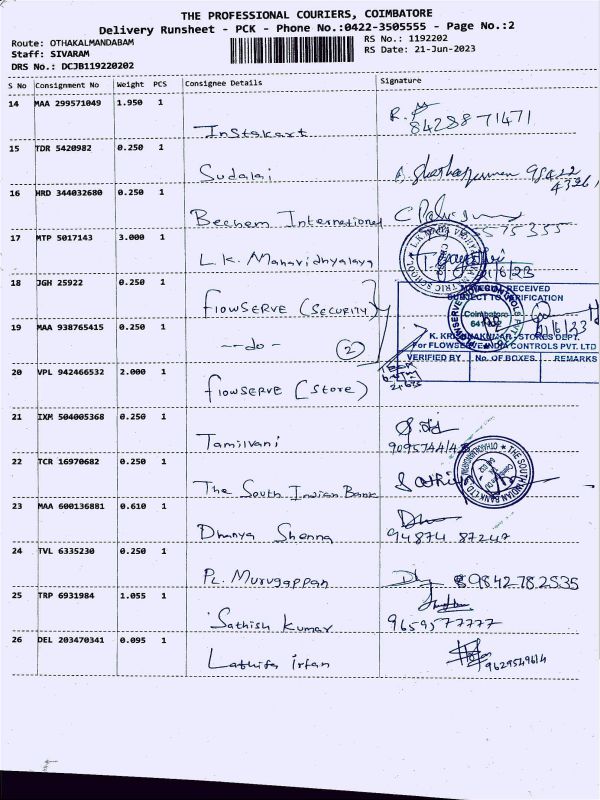 THE PROFESSIONAL COURIERS, COIMBATORE
Delivery Runsheet - PCK - Phone No.:0422-3505555 - Page No.:2
Route: OTHAKALMANDABAM
RS No.: 1192202
Staff: SIVARAM
RS Date: 21-Jun-2023
DRS No.: DCJB119220202
S No Consignment No Weight PCS Consignee Details Signature
14 MAA 299571049 1.950 1
Instakart
8428871471
15 TDR 5420982 0.250 1
Sudalai
16 HRD 344032680 0.250 1
Bechem International
17 MTP 5017143 3.000 1
L.K. Mahavidhyalaya
18 JGH 25922 0.250 1
FLOWSERVE (Security)
19 MAA 938765415 0.250 1
—do— (2)
20 VPL 942466532 2.000 1
FLOWSERVE (Store)
MATERIAL RECEIVED
SUBJECT TO VERIFICATION
Coimbatore
K. KRISHNAKUMAR - STORES DEPT.
For FLOWSERVE INDIA CONTROLS PVT. LTD
VERIFIED BY No. OF BOXES REMARKS
21 IXM 504005368 0.250 1
Tamilvani
22 TCR 16970682 0.250 1
The South Indian Bank
THE SOUTH INDIAN BANK LTD
23 MAA 600136881 0.610 1
Dhanya Shenna
94874 87247
24 TVL 6335230 0.250 1
PL. Murugappan
9842782535
25 TRP 6931984 1.055 1
Sathish Kumar
9659577777
26 DEL 203470341 0.095 1
Lathifa Irfan